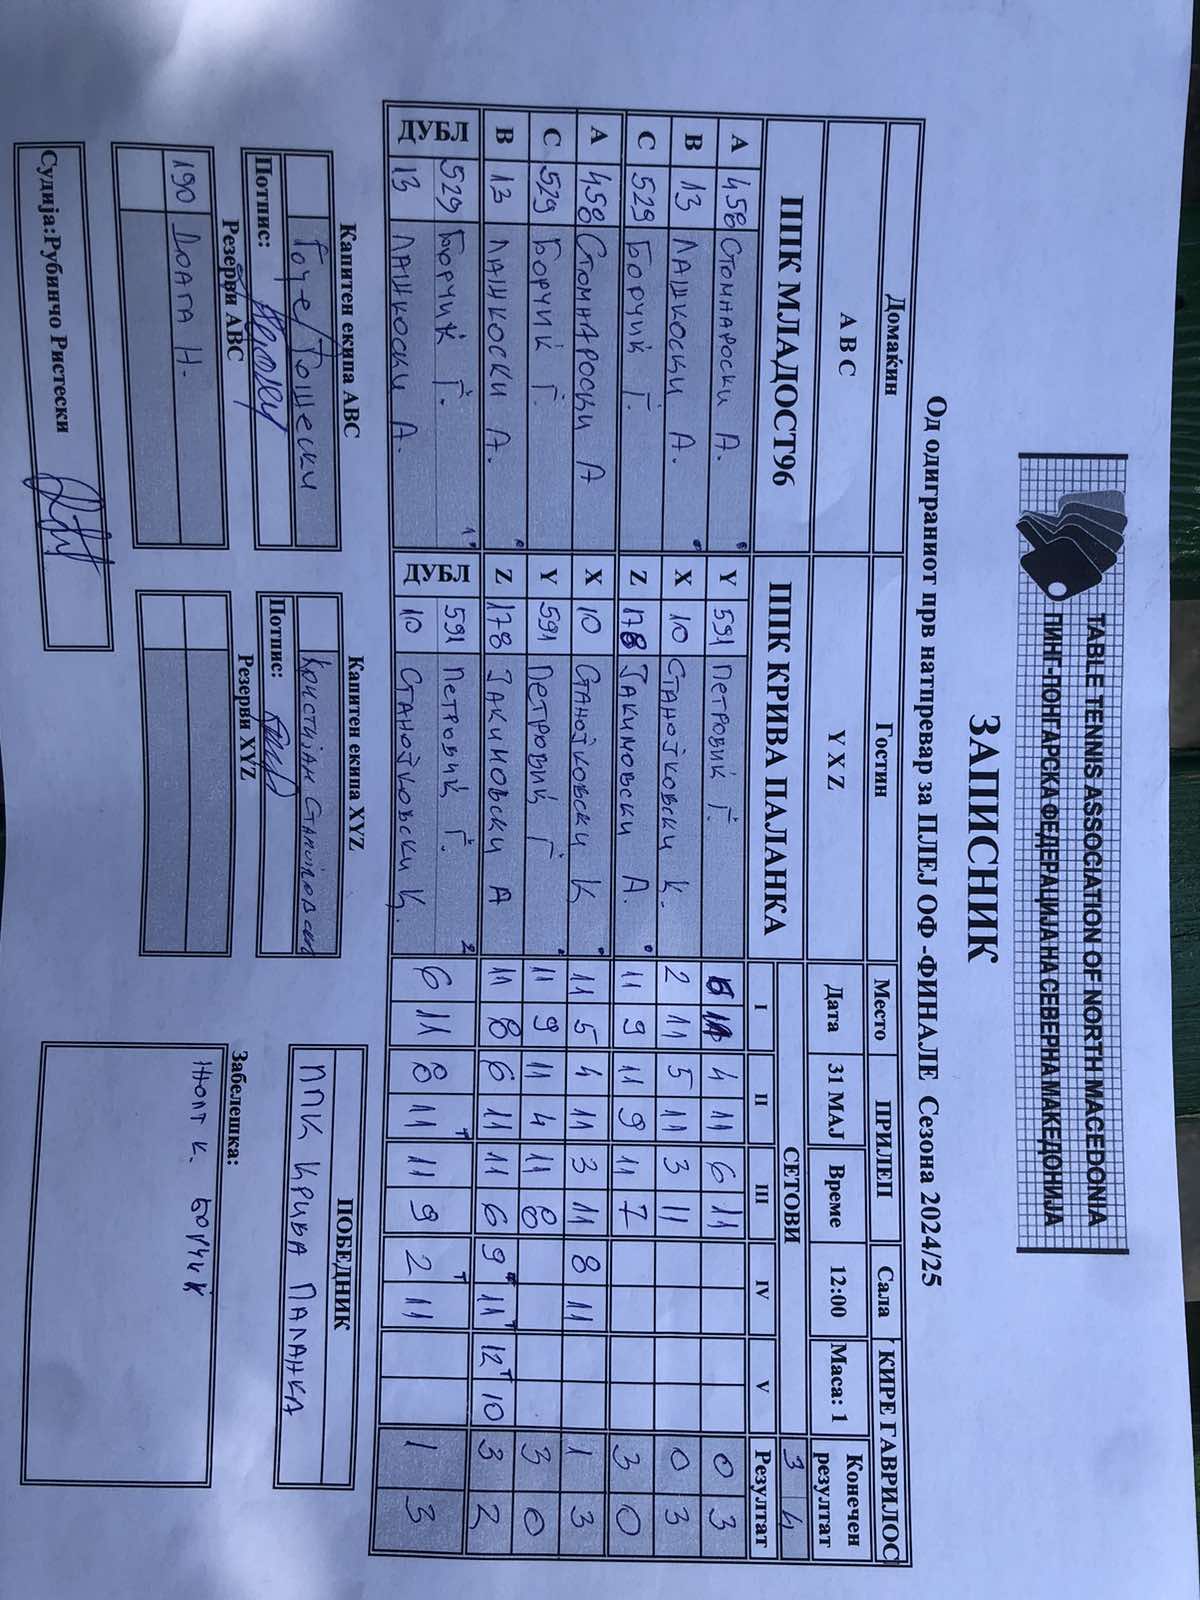 TABLE TENNIS ASSOCIATION OF NORTH MACEDONIA
ПИНГ-ПОНГАРСКА ФЕДЕРАЦИЈА НА СЕВЕРНА МАКЕДОНИЈА
ЗАПИСНИК
Од одиграниот прв натпревар за ПЛЕЈ ОФ -ФИНАЛЕ Сезона 2024/25
Домаќин Гостин Место ПРИЛЕП Сала КИРЕ ГАВРИЛОС
A B C Y X Z Дата 31 МАЈ Време 12:00 Маса: 1 Конечен резултат
ППК МЛАДОСТ96 ППК КРИВА ПАЛАНКА СЕТОВИ 3 4
I II III IV V Резултат
A 458 Стомнароски А. Y 591 Петровиќ Г. 4 11 6 11 0 3
B 13 Лашкоски А. X 10 Станојковски К. 2 11 5 11 3 11 0 3
C 529 Борчиќ Г. Z 178 Јакимовски А. 11 9 11 9 11 7 3 0
A 458 Стомнароски А X 10 Станојковски К 11 5 4 11 3 11 8 11 1 3
C 529 Борчиќ Г. Y 591 Петровиќ Г 11 9 11 4 11 8 3 0
B 13 Лашкоски А. Z 178 Јакимовски А 11 8 6 11 11 6 9 11 12 10 3 2
ДУБЛ 529 Борчиќ Г. ДУБЛ 591 Петровиќ Г. 6 11 8 11 11 9 2 11 1 3
13 Лашкоски А. 10 Станојковски К.
Капитен екипа ABC Капитен екипа XYZ ПОБЕДНИК
Гоце Тошески Кристијан Станојковски ППК КРИВА ПАЛАНКА
Потпис: Потпис:
Резерви ABC Резерви XYZ Забелешка:
190 Доага Н. Жолт к. Борчиќ
Судија:Рубинчо Ристески